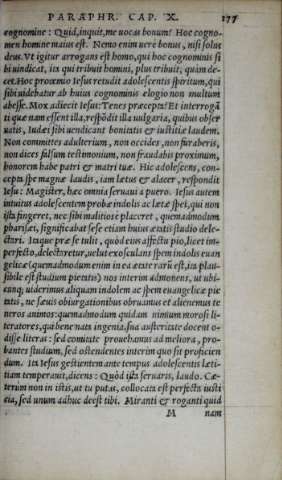 PARAPHR. CAP. X. 177
cognomine : Quid, inquit, me uocas bonum? Hoc cogno-
men homine maius est. Nemo enim uere bonus, nisi solus
deus. Vt igitur arrogans est homo, qui hoc cognominis si
bi uindicat, ita qui tribuit homini, plus tribuit, quàm de-
cet. Hoc proœmio Iesus retudit adolescentis spiritum, qui
sibi uidebatur ab huius cognominis elogio non multum
abesse. Mox adiecit Iesus: Tenes præcepta? Et interrogā
ti quæ nam essent illa, respōdit illa uulgaria, quibus obser
uatis, Iudæi sibi uendicant bonitatis & iustitiæ laudem.
Non committes adulterium, non occides, non furaberis,
non dices falsum testimonium, non fraudabis proximum,
honorem habe patri & matri tuæ. Hic adolescens, con-
cepta spe magnæ laudis, iam lætus & alacer, respondit
Iesu: Magister, hæc omnia seruaui a puero. Iesus autem
intuitus adolescentem probæ indolis ac lætæ spei, qui non
ista fingeret, nec sibi malitiose placeret, quemadmodum
pharisæi, significabat sese etiam huius ætatis studio dele-
ctari. Itaque præ se tulit, quòd eius affectu pio, licet im-
perfecto, delectaretur, uelut exosculans spem indolis euan
gelicæ (quemadmodum enim in ea ætate rarū est, ita plau-
sibile est studium pietatis) nos interim admonens, ut ubi-
cunq; uiderimus aliquam indolem ac spem euangelicæ pie
tatis, ne sæuis obiurgationibus obruamus et alienemus te
neros animos: quemadmodum quidam nimium morosi li-
teratores, quàbene nata ingenia, sua austeritate docent o-
disse literas : sed comitate prouehamus ad meliora, pro-
bantes studium, sed ostendentes interim quo sit proficien
dum. Ita Iesus gestientem ante tempus adolescentis læti-
tiam temperauit, dicens : Quòd ista seruaris, laudo. Cæ-
terùm non in istis, ut tu putas, collocata est perfecta iusti
cia, sed unum adhuc deest tibi. Miranti & roganti quid
M nam